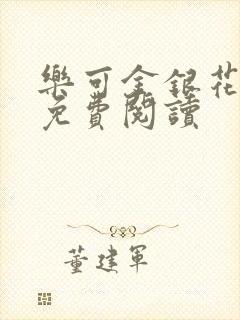 樂可金銀花
免費閱讀
董建軍